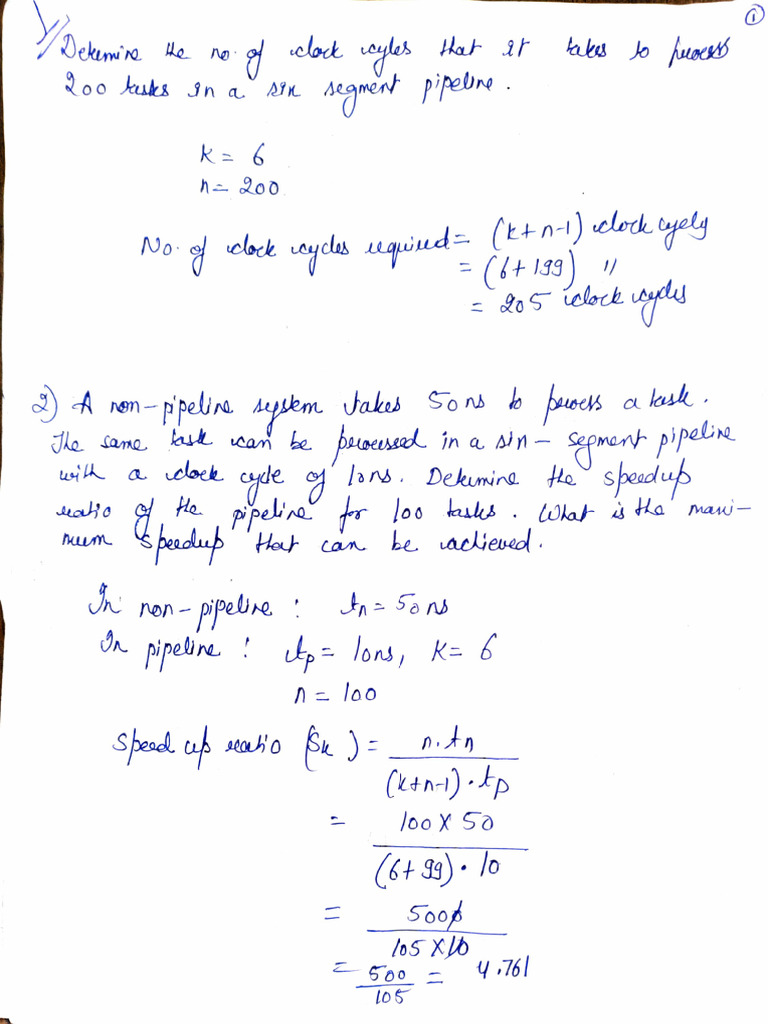 ①
1) Determine the no. of clock cycles that it takes to process
200 tasks in a six segment pipeline.
k = 6
n = 200
No. of clock cycles required = (k+n-1) clock cycles
= (6+199) "
= 205 clock cycles
2) A non-pipeline system takes 50ns to process a task.
The same task can be processed in a six-segment pipeline
with a clock cycle of 10ns. Determine the speedup
ratio of the pipeline for 100 tasks. What is the maxi-
mum speedup that can be achieved.
In non-pipeline : tn = 50ns
In pipeline : tp = 10ns, k = 6
n = 100
Speed up ratio (Sk) = n.tn / (k+n-1).tp
= 100 x 50 / (6+99).10
= 5000 / 105 x 10
= 500 / 105 = 4.761